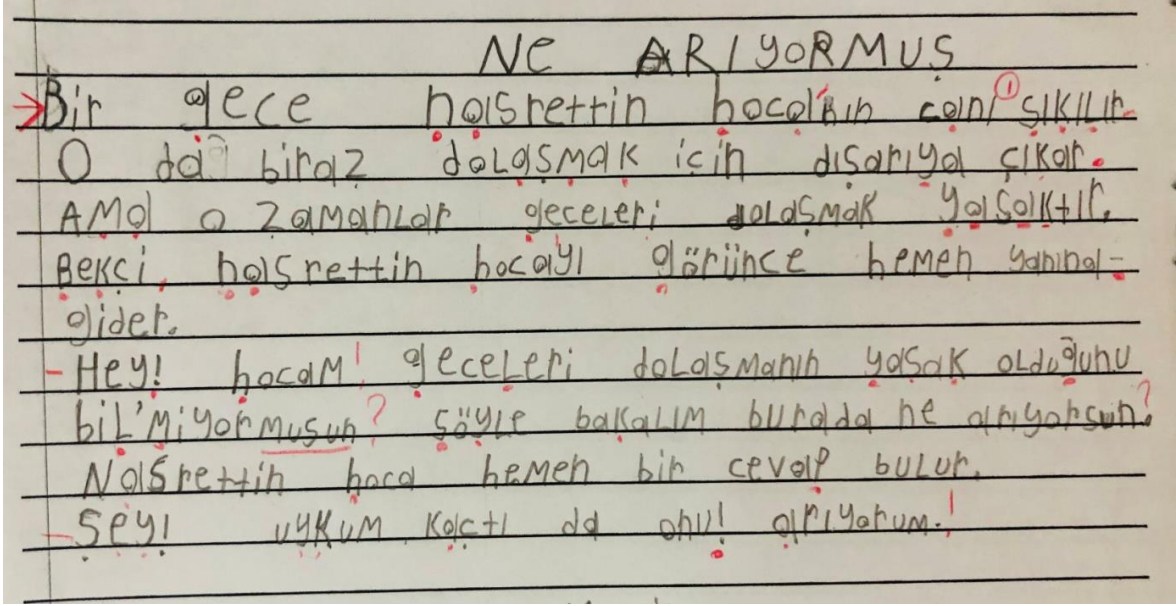 NE ARIYORMUŞ
Bir gece nasrettin hoca'nın canı sıkılır.
O da biraz dolaşmak için dışarıya çıkar.
AMA o zamanlar geceleri dolaşmak yasaktır.
Bekçi, nasrettin hocayı görünce hemen yanına
gider.
- Hey! hocam! geceleri dolaşmanın yasak olduğunu
bil'miyormusun? söyle bakalım burada ne arıyorsun?
Nasrettin hoca hemen bir cevap bulur.
- Şey! uykum kaçtı da onu! arıyorum.!